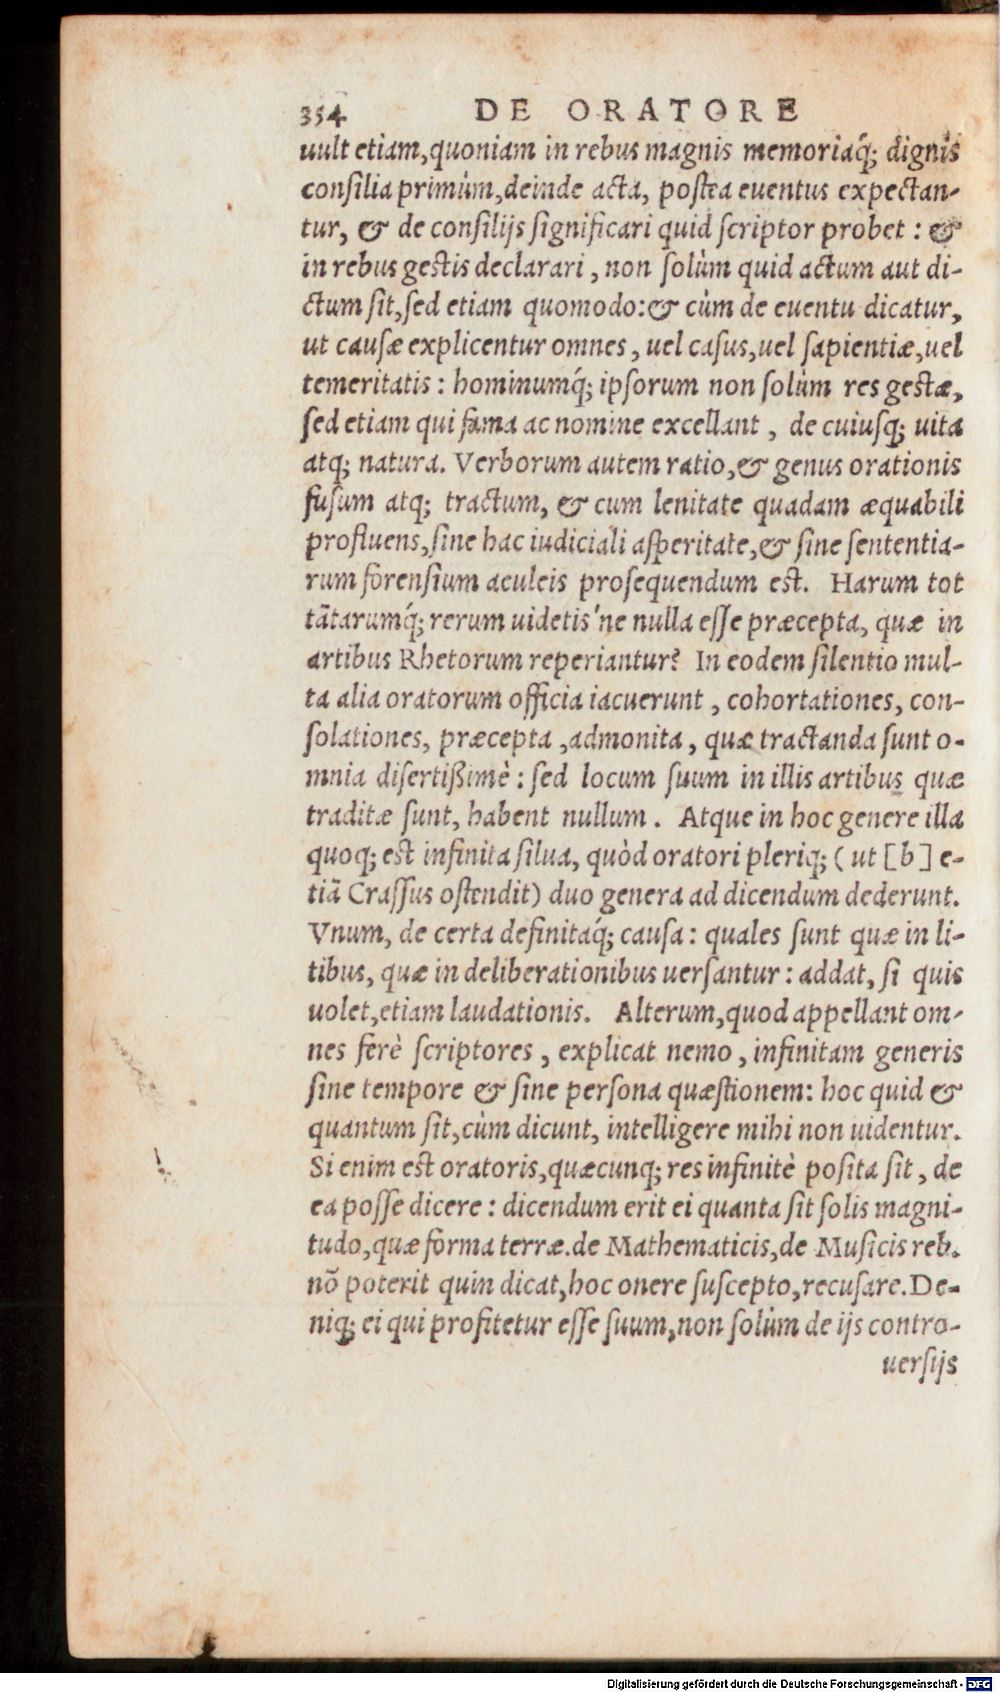 354 DE ORATORE
uult etiam,quoniam in rebus magnis memoriaq́; dignis
consilia primùm,deinde acta, postea euentus expectan-
tur, & de consilijs significari quid scriptor probet : &
in rebus gestis declarari , non solùm quid actum aut di-
ctum sit,sed etiam quomodo:& cùm de euentu dicatur,
ut causæ explicentur omnes , uel casus,uel sapientiæ,uel
temeritatis : hominumq́; ipsorum non solùm res gestæ,
sed etiam qui fama ac nomine excellant , de cuiusq; uita
atq; natura. Verborum autem ratio,& genus orationis
fusum atq; tractum, & cum lenitate quadam æquabili
profluens,sine hac iudiciali asperitate,& sine sententia-
rum forensium aculeis prosequendum est. Harum tot
tātarumq́; rerum uidetis'ne nulla esse præcepta, quæ in
artibus Rhetorum reperiantur? In eodem silentio mul-
ta alia oratorum officia iacuerunt , cohortationes, con-
solationes, præcepta ,admonita , quæ tractanda sunt o-
mnia disertißimè : sed locum suum in illis artibus quæ
traditæ sunt, habent nullum . Atque in hoc genere illa
quoq; est infinita silua, quòd oratori pleriq; ( ut [ b ] e-
tiā Crassus ostendit) duo genera ad dicendum dederunt.
Vnum, de certa definitaq́; causa : quales sunt quæ in li-
tibus, quæ in deliberationibus uersantur : addat, si quis
uolet,etiam laudationis. Alterum,quod appellant om-
nes ferè scriptores , explicat nemo , infinitam generis
sine tempore & sine persona quæstionem: hoc quid &
quantum sit,cùm dicunt, intelligere mihi non uidentur.
Si enim est oratoris,quæcunq; res infinitè posita sit , de
ea posse dicere : dicendum erit ei quanta sit solis magni-
tudo,quæ forma terræ.de Mathematicis,de Musicis reb.
nō poterit quin dicat,hoc onere suscepto,recusare.De-
niq; ei qui profitetur esse suum,non solùm de ijs contro-
uersijs
Digitalisierung gefördert durch die Deutsche Forschungsgemeinschaft - DFG